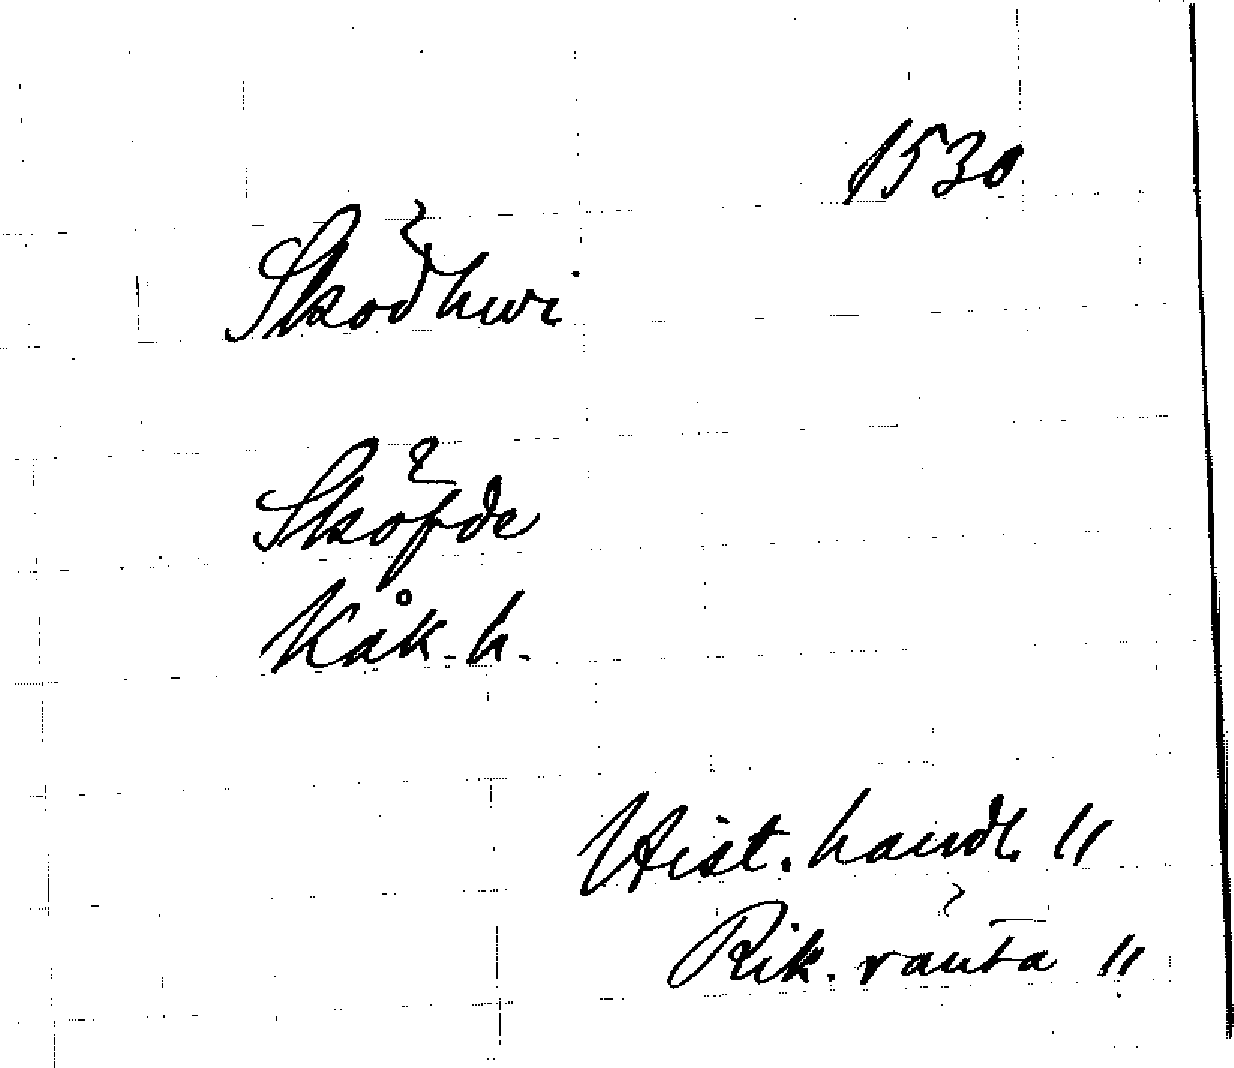 1530
Sködhwi
Sköfde
Kåk. h.
Hist. handl. 11
Rik. ränta 11